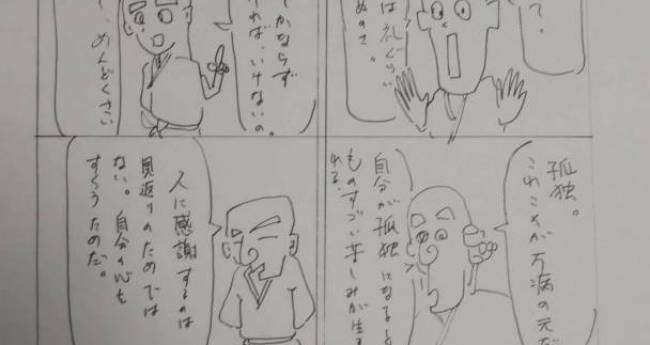 て。
は礼ぐらい
かならず
ければ、いけないの。
めんどくさい
孤独。
これこそが万病の元だ
自分が孤独になると
ものすごい苦しみが生
れる。
人に感謝するのは
見返りのためでは
ない。自分の心も
すくうためだ。